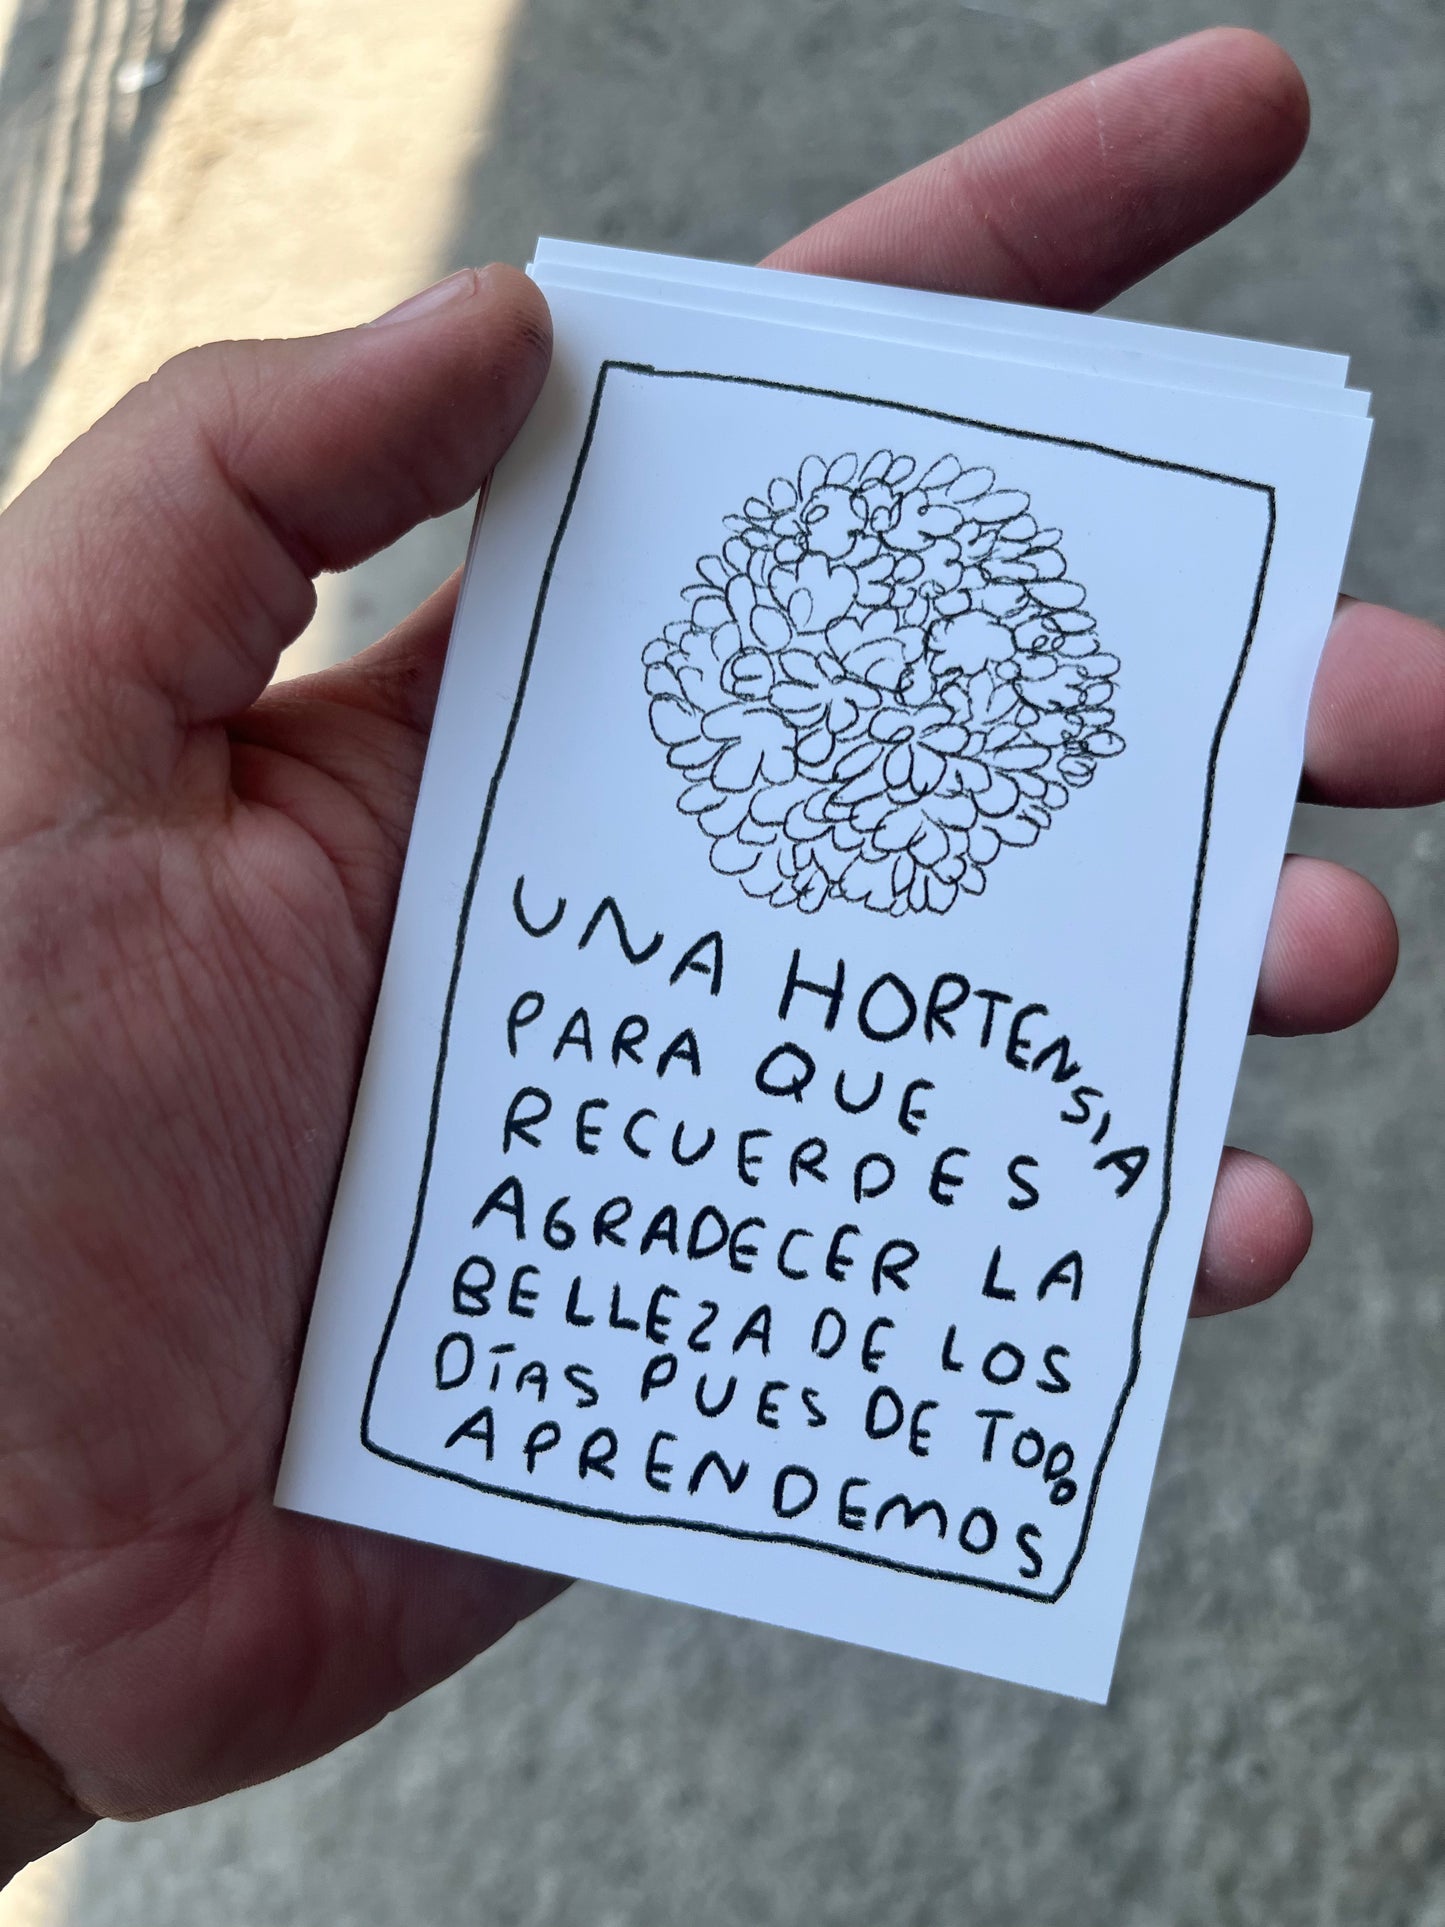 UNA HORTENSIA
PARA QUE
RECUERDES
AGRADECER LA
BELLEZA DE LOS
DÍAS PUES DE TODO
APRENDEMOS